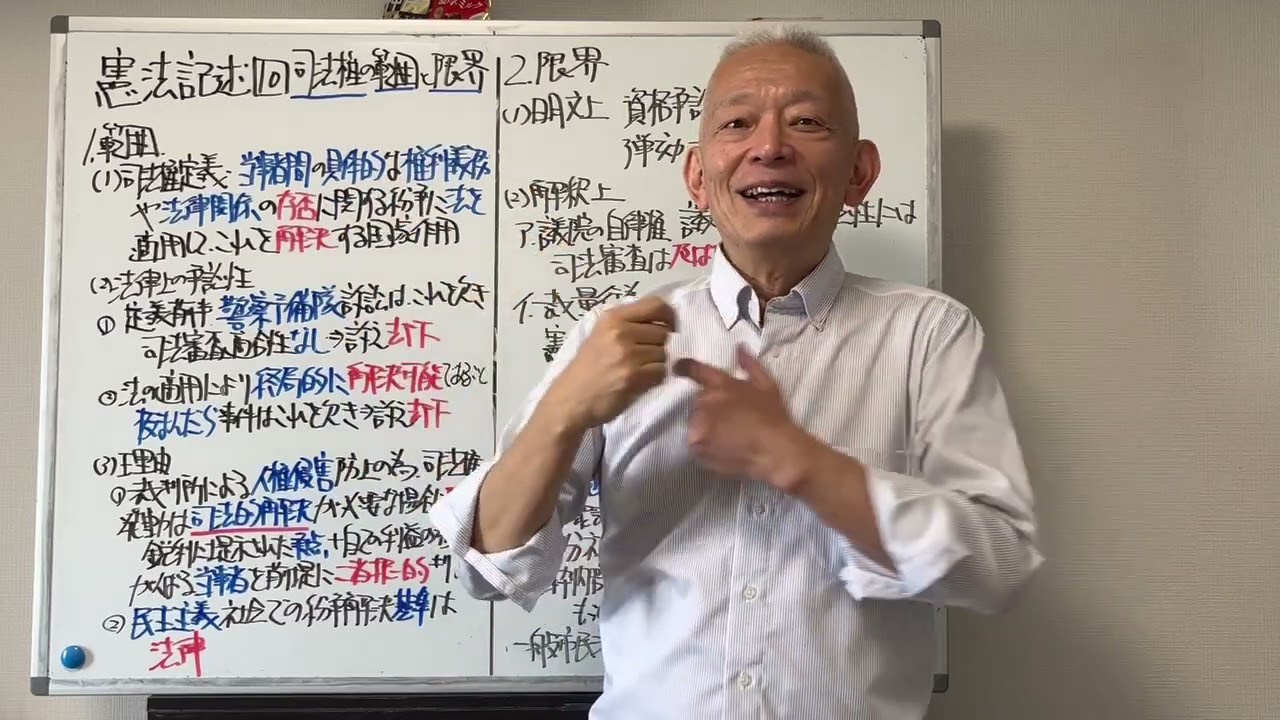 憲法記述⑩司法権の範囲と限界
1.範囲
(1)司法権定義:当事者間の具体的な権利義務
や法律関係の存否に関する紛争に法を
適用して、これを解決する国家作用
(2)法律上の争訟性
① 定義前半 警察予備隊訴訟は、これを欠き
司法審査適合性なし⇒訴え却下
②法の適用により終局的に解決可能
板まんだら事件はこれを欠き⇒訴え却下
(3)理由
①裁判所による人権侵害防止の為、司法権
発動は司法的解決が必要な場合
鋭利に提示された争点、自己の利益の
がんばる当事者を前提に二者択一的
②民主主義社会での紛争解決基準は
法律
2.限界
(1)明文上 資格争訟
弾劾
(2)解釈上
ア.議院の自律権 議 には
司法審査は及ば
イ.裁量行為
憲
一般市民